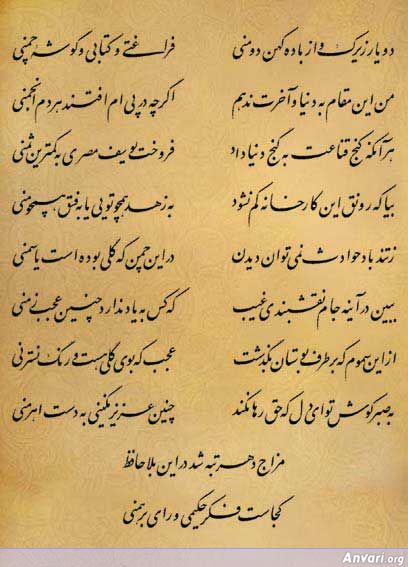 دو یار زیرک و از باده کهن دو منی فراغتی و کتابی و گوشه چمنی
من این مقام به دنیا و آخرت ندهم اگر چه در پی ام افتند هر دم انجمنی
هر آنکه کنج قناعت به گنج دنیا داد فروخت یوسف مصری به کمترین ثمنی
بیا که رونق این کارخانه کم نشود به زهد همچو تویی یا به فسق همچو منی
ز تند باد حوادث نمی توان دیدن در این چمن که گلی بوده است یا سمنی
ببین در آینه جام نقشبندی غیب که کس به یاد ندارد چنین عجب زمنی
از این سموم که بر طرف بوستان بگذشت عجب که بوی گلی هست و رنگ نسترنی
به صبر کوش تو ای دل که حق رها نکند چنین عزیز نگینی به دست اهرمنی
مزاج دهر تبه شد در این بلا حافظ
کجاست فکر حکیمی و رای برهمنی
Anvari.org